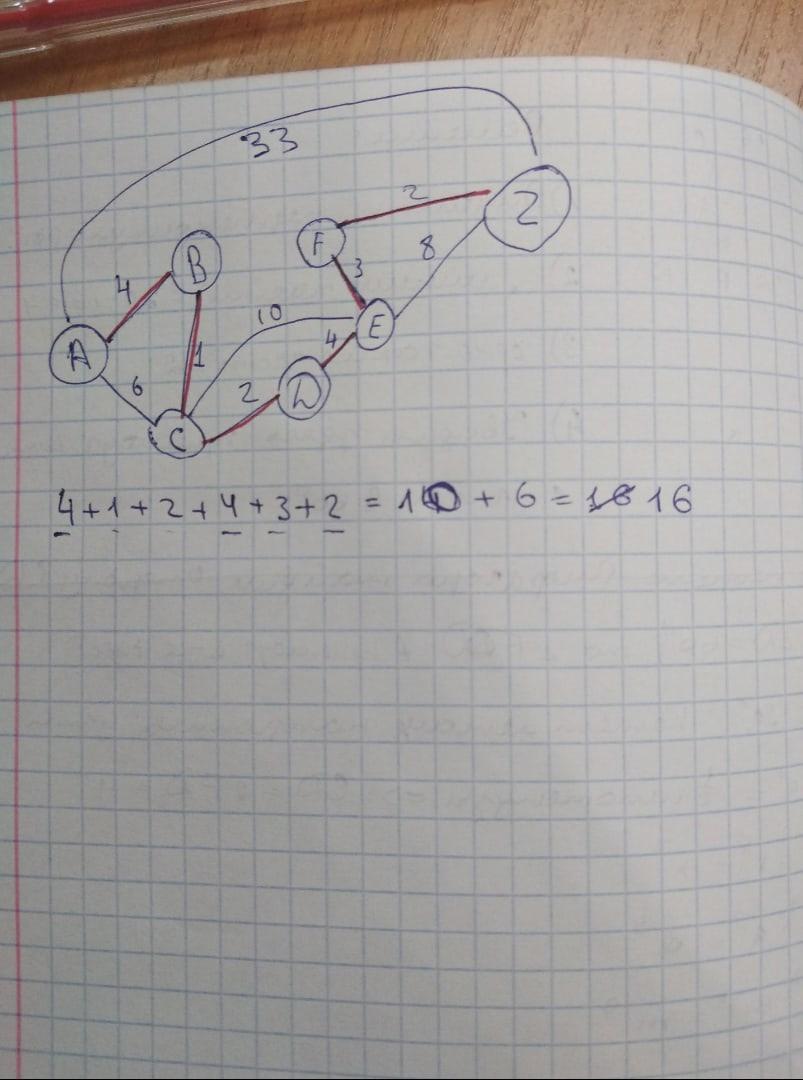 33
2
B
F
Z
4
3
8
10
A
1
4
E
6
2
D
C
4+1+2+4+3+2 = 10 + 6 = 16 16